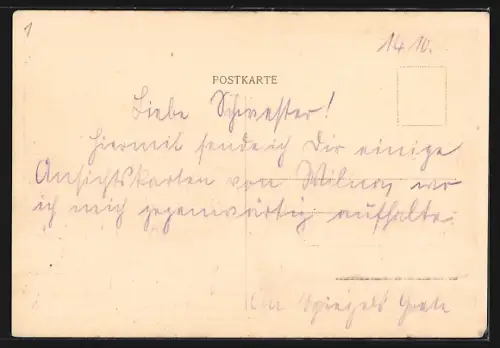 1
14 10.
POSTKARTE
Liebe Schwester!
Hiermit sende ich Dir einige
Ansichtskarten von Wilna, wo
ich mich gegenwärtig aufhalte.